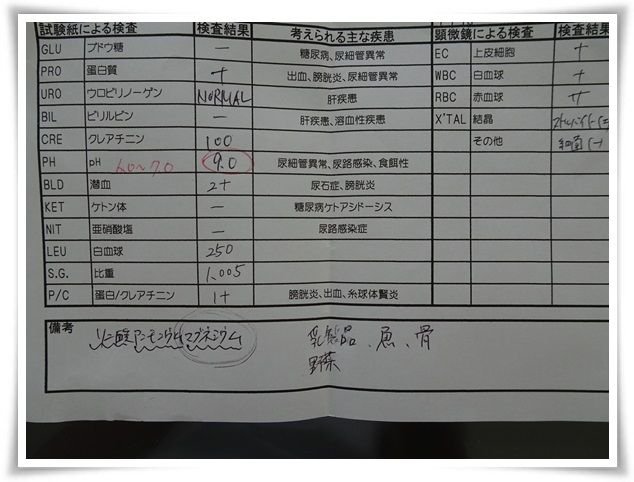 試験紙による検査 検査結果 考えられる主な疾患 顕微鏡による検査 検査結果
GLU ブドウ糖 − 糖尿病、尿細管異常 EC 上皮細胞 +
PRO 蛋白質 + 出血、膀胱炎、尿細管異常 WBC 白血球 +
URO ウロビリノーゲン NORMAL 肝疾患 RBC 赤血球
BIL ビリルビン − 肝疾患、溶血性疾患 X'TAL 結晶
CRE クレアチニン 100 その他 細菌(−)
PH pH 6.0〜7.0 9.0 尿細管異常、尿路感染、食餌性
BLD 潜血 2+ 尿石症、膀胱炎
KET ケトン体 − 糖尿病ケトアシドーシス
NIT 亜硝酸塩 − 尿路感染症
LEU 白血球 250
S.G. 比重 1.005
P/C 蛋白/クレアチニン 1+ 膀胱炎、出血、糸球体腎炎
備考
リン酸アンモニウムマグネシウム 乳製品、魚、骨
野菜